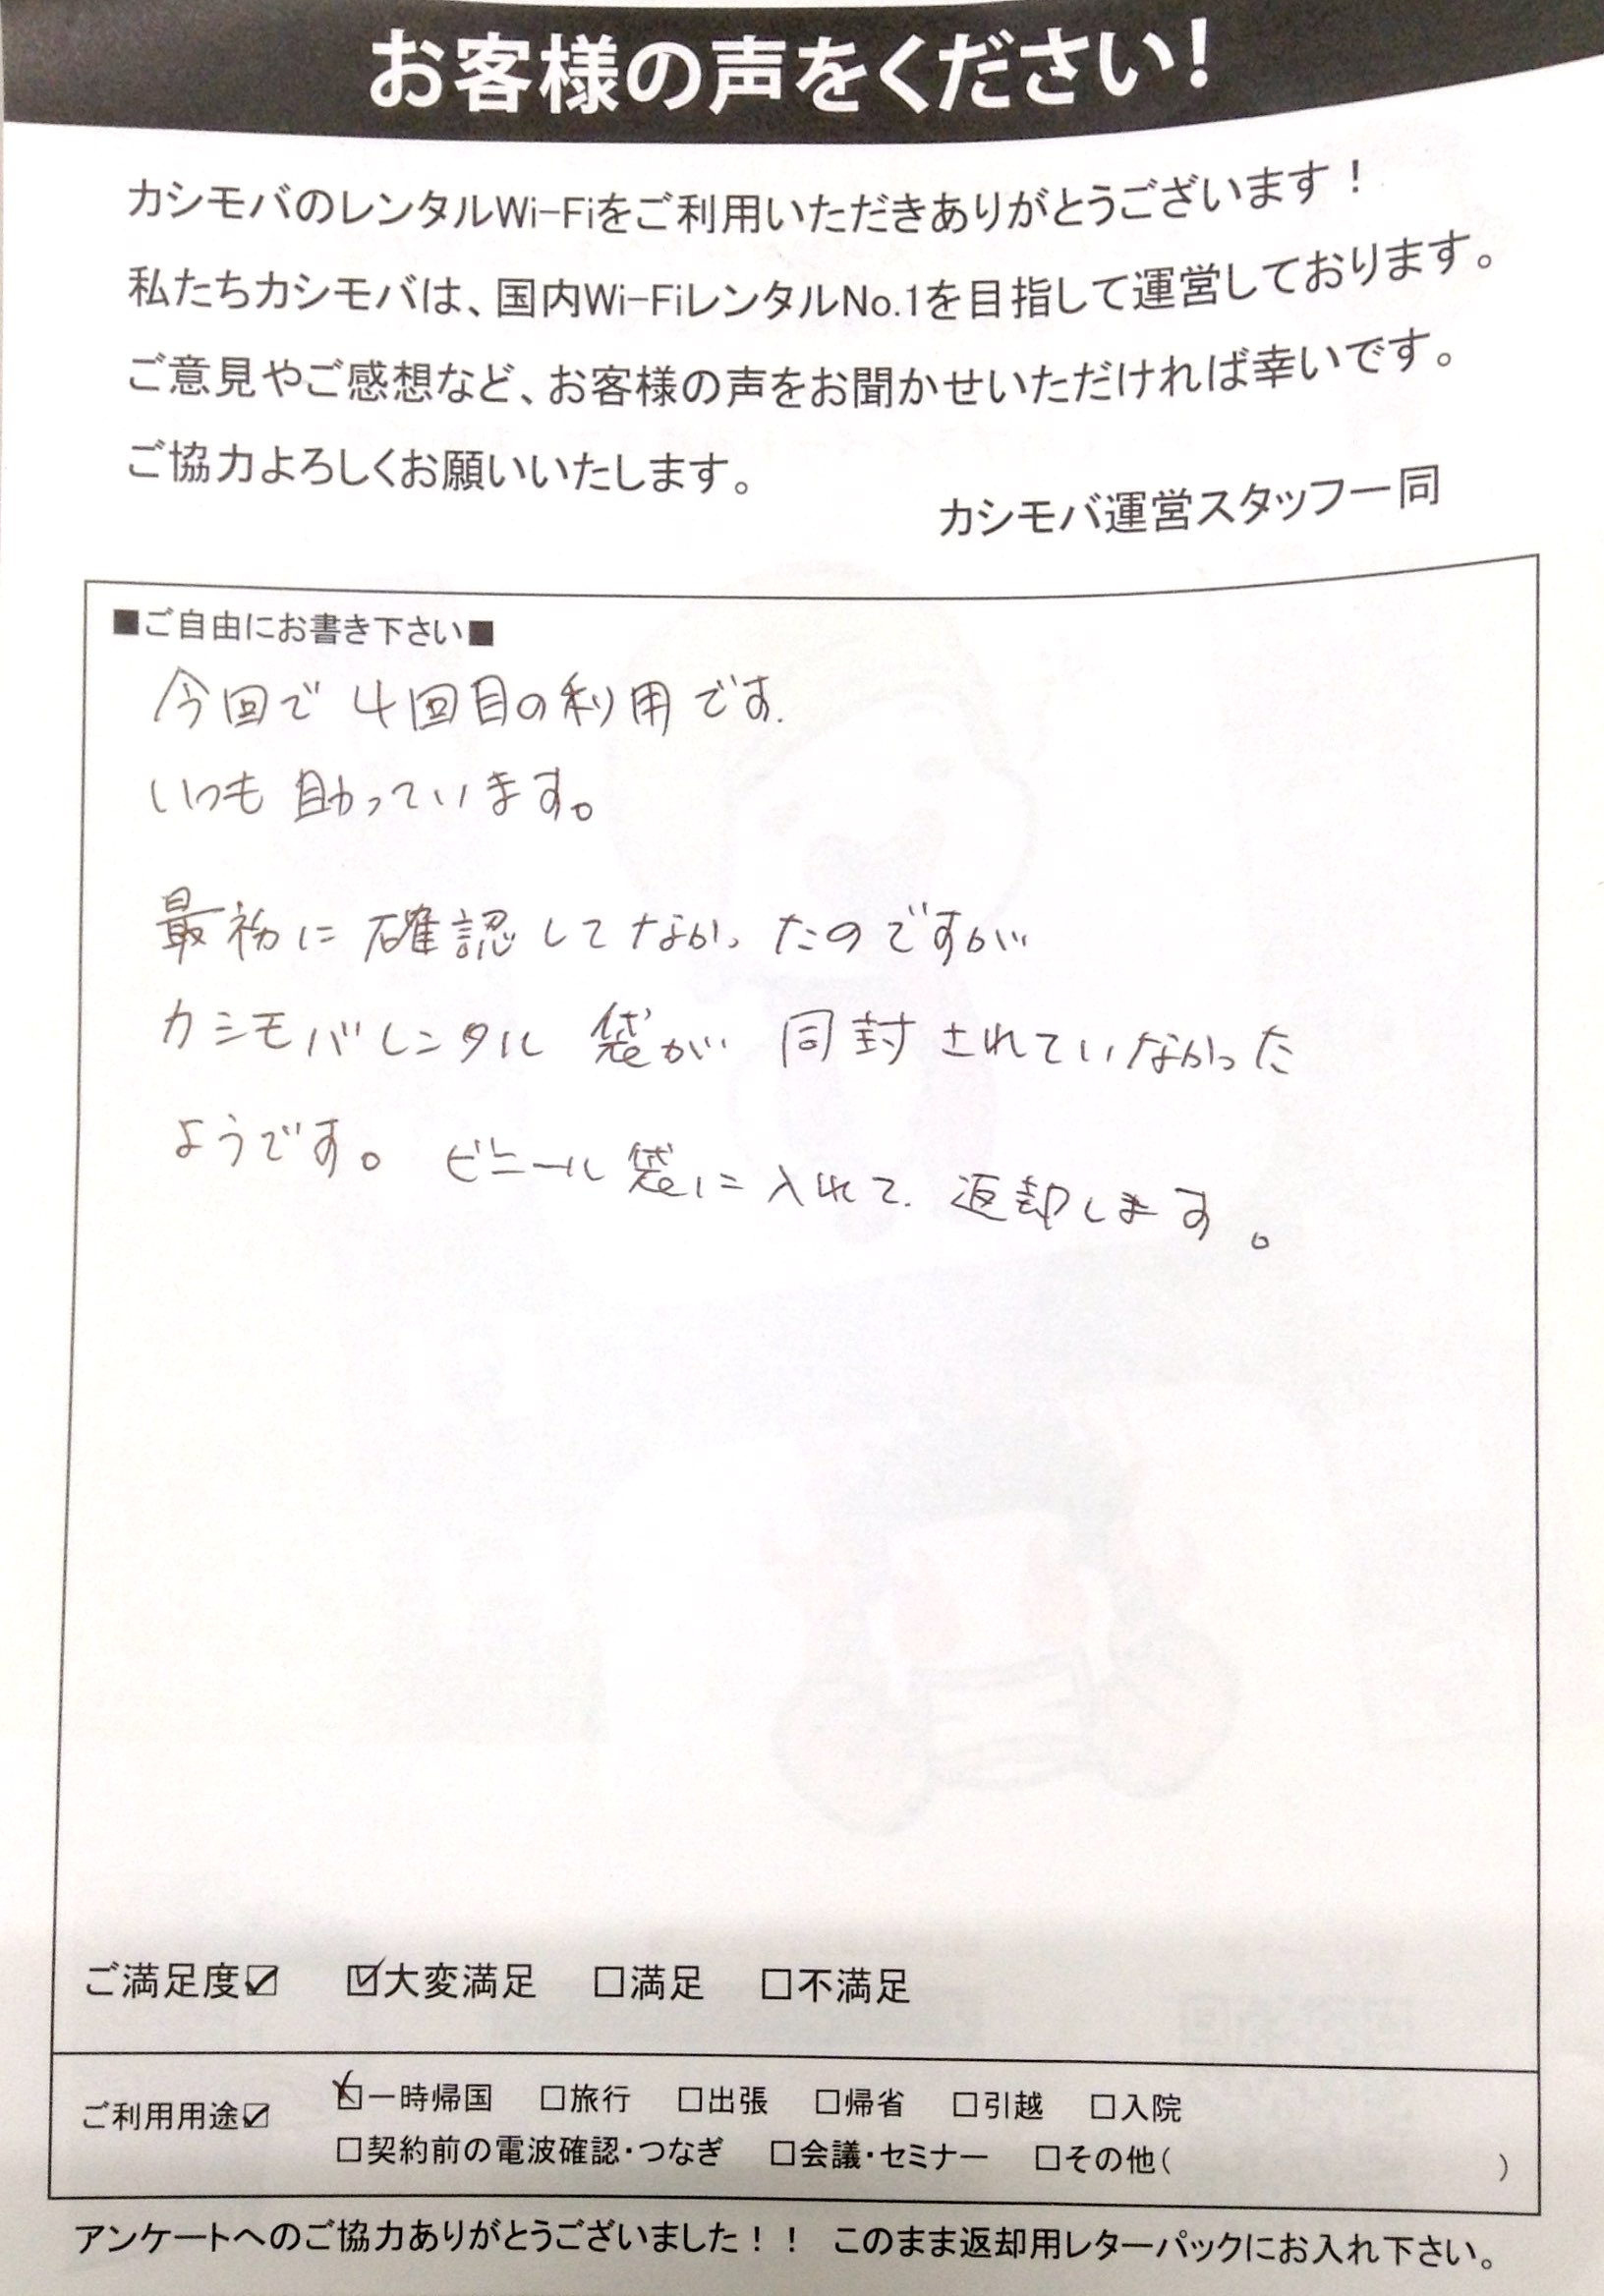 お客様の声をください!
カシモバのレンタルWi-Fiをご利用いただきありがとうございます！
私たちカシモバは、国内Wi-FiレンタルNo.1を目指して運営しております。
ご意見やご感想など、お客様の声をお聞かせいただければ幸いです。
ご協力よろしくお願いいたします。
カシモバ運営スタッフ一同
■ご自由にお書き下さい■
今回で4回目の利用です.
いつも助っています。
最初に確認してなかったのですが
カシモバレンタル袋が同封されていなかった
ようです。ビニール袋に入れて返却します。
ご満足度☑ ☑大変満足 □満足 □不満足
ご利用用途☑ ☑一時帰国 □旅行 □出張 □帰省 □引越 □入院
□契約前の電波確認・つなぎ □会議・セミナー □その他( )
アンケートへのご協力ありがとうございました！！ このまま返却用レターパックにお入れ下さい。